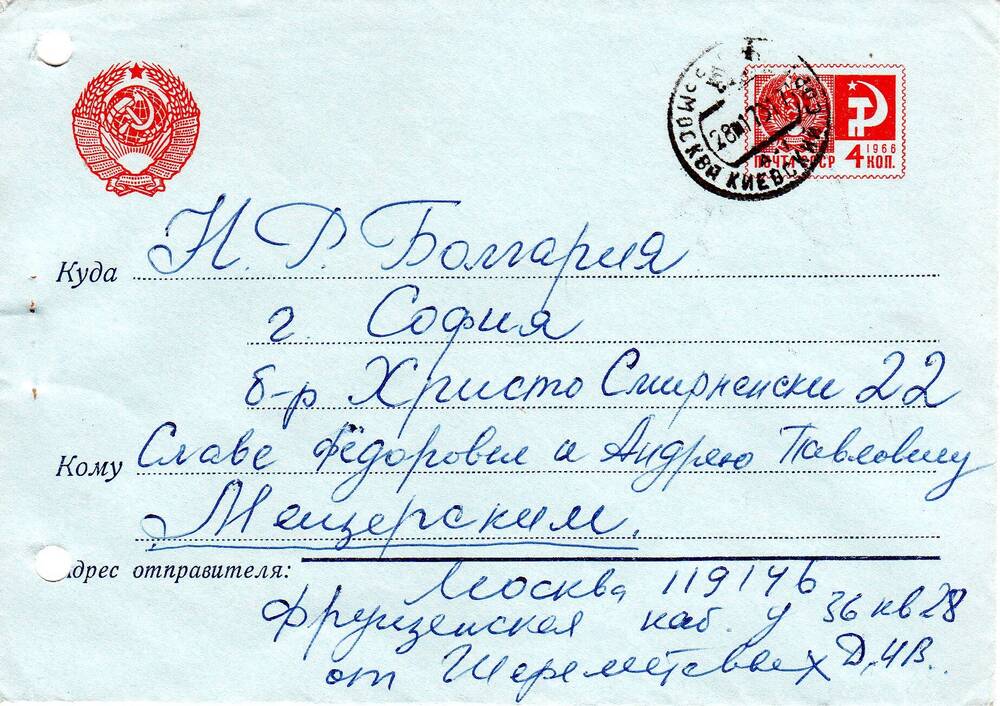 МОСКВА КИЕВСКИЙ
28
1966
ПОЧТА СССР 4 КОП.
Куда Н. Р. Болгария
г. София
б-р Христо Смирненски 22
Кому Славе Фёдоровне и Андрею Павловичу
Мещерским.
Адрес отправителя:
Москва 119146
Фрунзенская наб. 36 кв 28
от Шереметевых Д, и В.